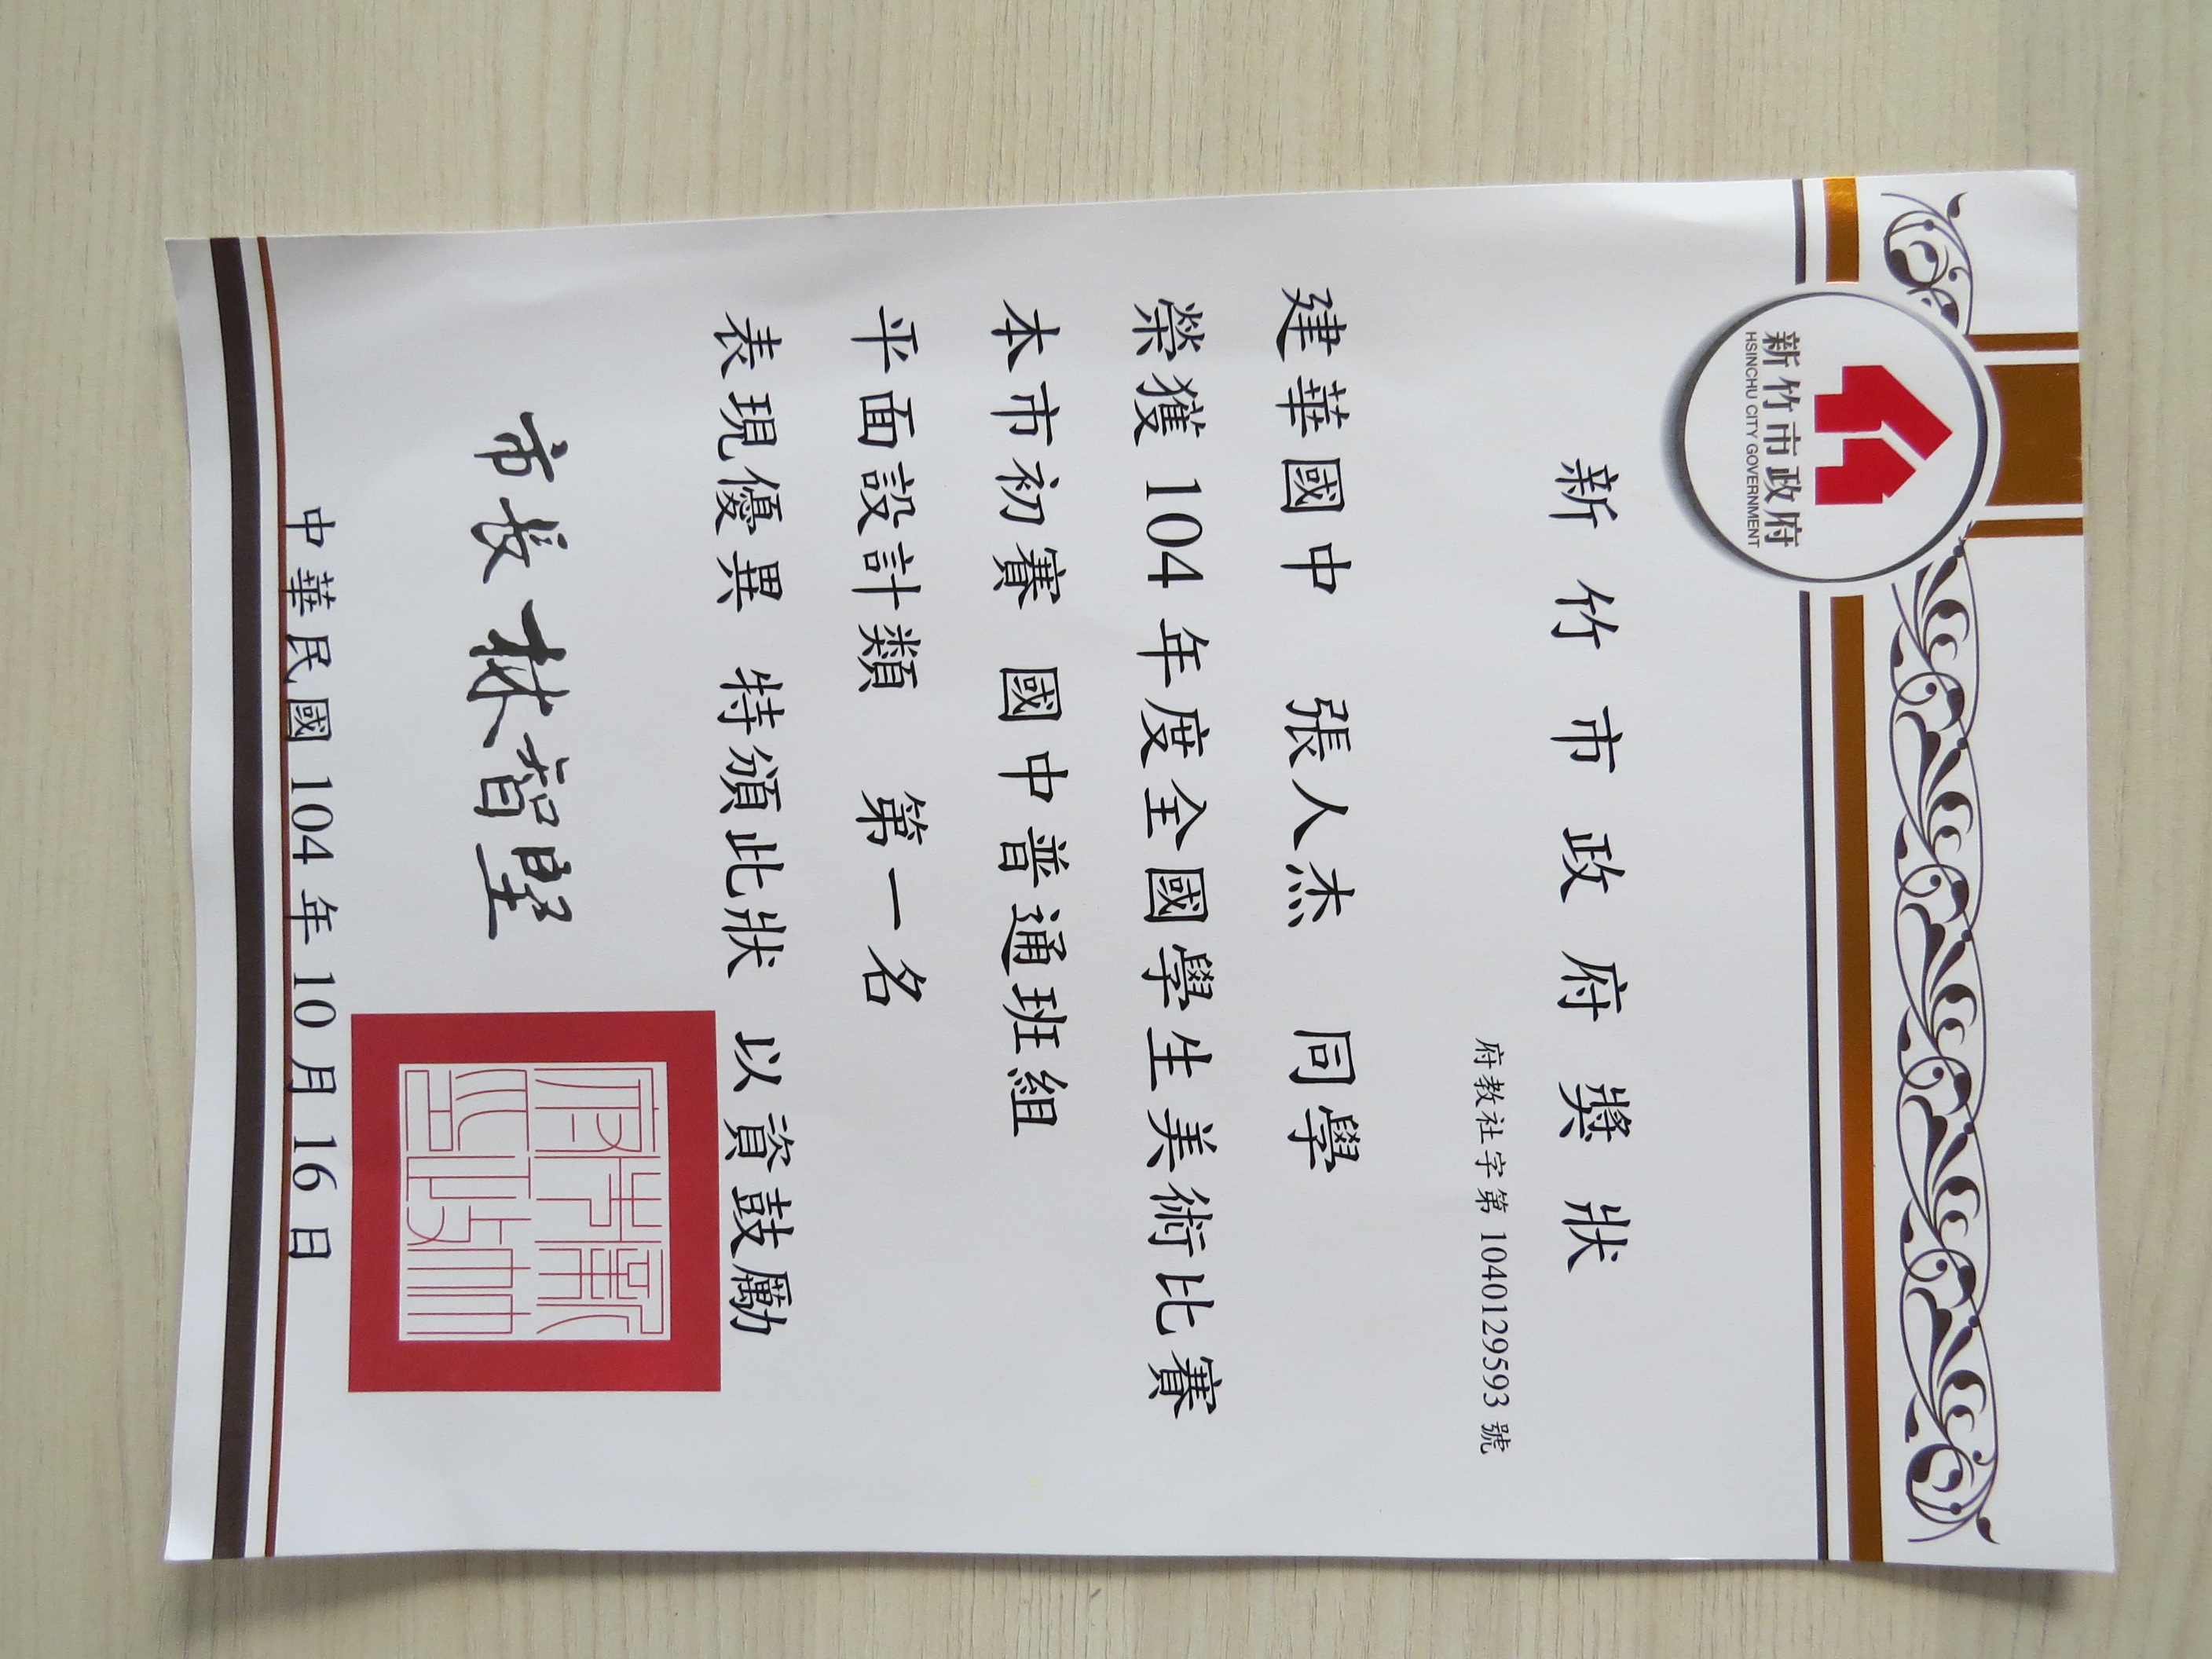 新竹市政府
HSINCHU CITY GOVERNMENT
新竹市政府獎狀
府教社字第 1040129593 號
建華國中 張人杰 同學
榮獲 104 年度全國學生美術比賽
本市初賽 國中普通班組
平面設計類 第一名
表現優異 特頒此狀 以資鼓勵
市長 林智堅
中華民國 104 年 10 月 16 日